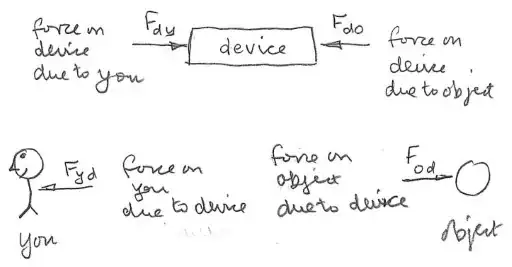 force on
device
due to you
Fdy
device
Fdo
force on
device
due to object
you
Fyd
force on
you
due to device
force on
object
due to device
Fod
object